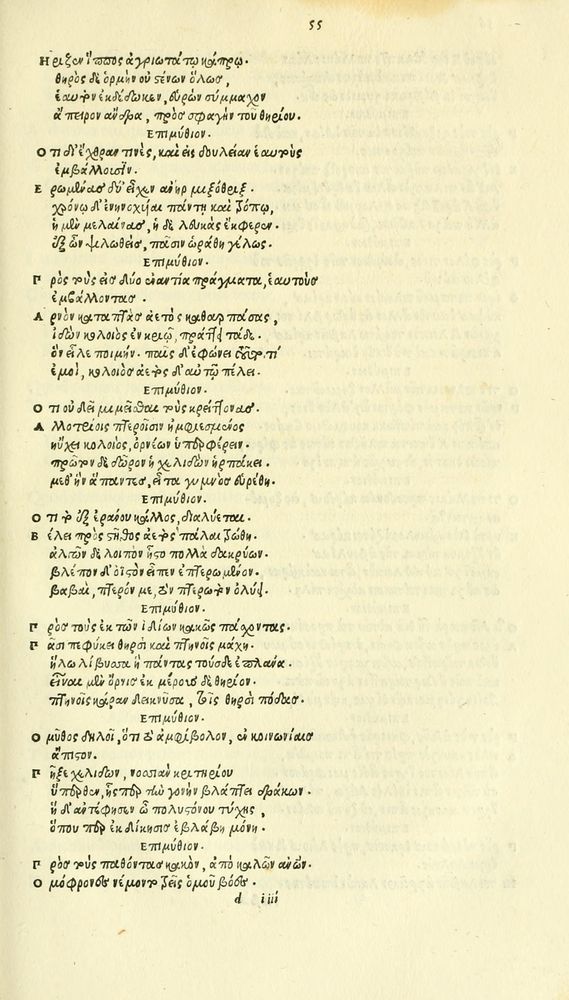 55
Ηριζεν ἵππος ἀγριωτάτῳ κάπρῳ.
θηρὸς δὲ ὁρμὴν οὐ στένων ὅλως,
ἑαυτὸν ἐκδέδωκεν, εὑρὼν σύμμαχον
ἄπειρον ἄνδρα, πρὸς σφαγὴν τοῦ θηρίου.
Επιμύθιον.
Οτι δι' ἔχθραν τινὲς, καὶ εἰς δουλείαν ἑαυτοὺς
ἐμβάλλουσιν.
Ερωμένας δύ' εἶχεν ἀνὴρ μιξόθριξ.
χρόνῳ δ' ἐνηνοχυῖαι πάντῃ καὶ τόπῳ,
ἡ μὲν μελαίνας, ἡ δὲ λευκὰς ἐκφερον.
ἐξ ὧν ψιλωθεὶς, πᾶσιν ὡράθη γέλως.
Επιμύθιον.
Πρὸς τοὺς εἰς δύο ἐναντία πράγματα, ἑαυτοὺς
ἐμβάλλοντας.
Αρνὸν καταπτὰς ἀετὸς καθαρπάσας,
ἰδὼν κολοιὸς ἐν κριῷ, πράττει τάδε.
ὃν εἷλε ποιμήν. παῖς δ' ἐφώνει τί
ἐμοὶ, κολοιὸς ἀετὸς δ' αὑτῷ πέλει.
Επιμύθιον.
Οτι οὐ δεῖ μιμεῖσθαι τοὺς κρείττονας.
Αλλοτρίοις πτεροῖσιν ἠμφιεσμένος
ηὔχει κολοιὸς, ὀρνέων ὑπερφέρειν.
πρῶτον δὲ δῶρον ἡ χελιδὼν ἡρπάκει.
μεθ' ἣν ἅπαντες, εἶτα γυμνὸς εὑρέθη.
Επιμύθιον.
Οτι τὸ ἐξ ἐράνου κάλλος, διαλύεται.
Βέλει πρὸς στῆθος ἀετὸς πάλαι τρώθη.
ἀλγῶν δὲ λοιπὸν ἧστο πολλὰ δακρύων.
βλέπων δ' ὀϊστὸν εἶπεν ἐπτερωμένον.
βαβαὶ, πτερόν με, τὸν πτερωτὸν ὀλύει.
Επιμύθιον.
Πρὸς τοὺς ἐκ τῶν ἰδίων κακῶς πάσχοντας.
Πᾶσι πεφύκει θηρσὶ καὶ πτηνοῖς μάχη.
ἥλω λίβυσσα ἣ πάντας τούσδε ἐπλάνα.
εἶναι μὲν ὄρνις ἐκ μέρους δὲ θηρίον.
πτηνοῖς κάραν δεικνῦσα, τοῖς θηρσὶ πόδας.
Επιμύθιον.
Ο μῦθος δηλοῖ, ὅτι τὸ ἀμφίβολον, ἐν κοινωνίαις
ἄπιστον.
Πῆξε χελιδὼν, νοσσιὰν κριτηρίου
ὕπερθεν, ἧς περ τὴν γονὴν βλάπτει δράκων.
ἡ δ' ἀντέφησεν ὦ πολυστόνου τύχης,
ὅπου περ ἐκδίκησις ἐβλάβη μόνη.
Επιμύθιον.
Πρὸς τοὺς παθόντας κακὸν, ἀπὸ καλῶν ἀνῶν.
Ομόφρονες νέμοντο τρεῖς ὁμοῦ βόες.
d iiii